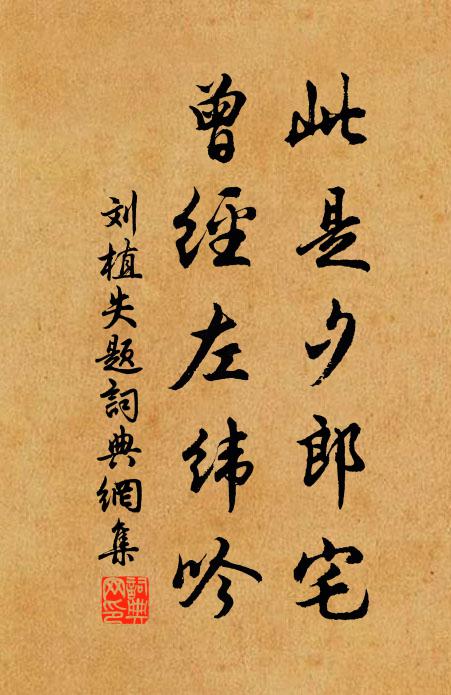 此是夕郎宅
曾經左緯吟
刘植失题詞典網集
詞典网印